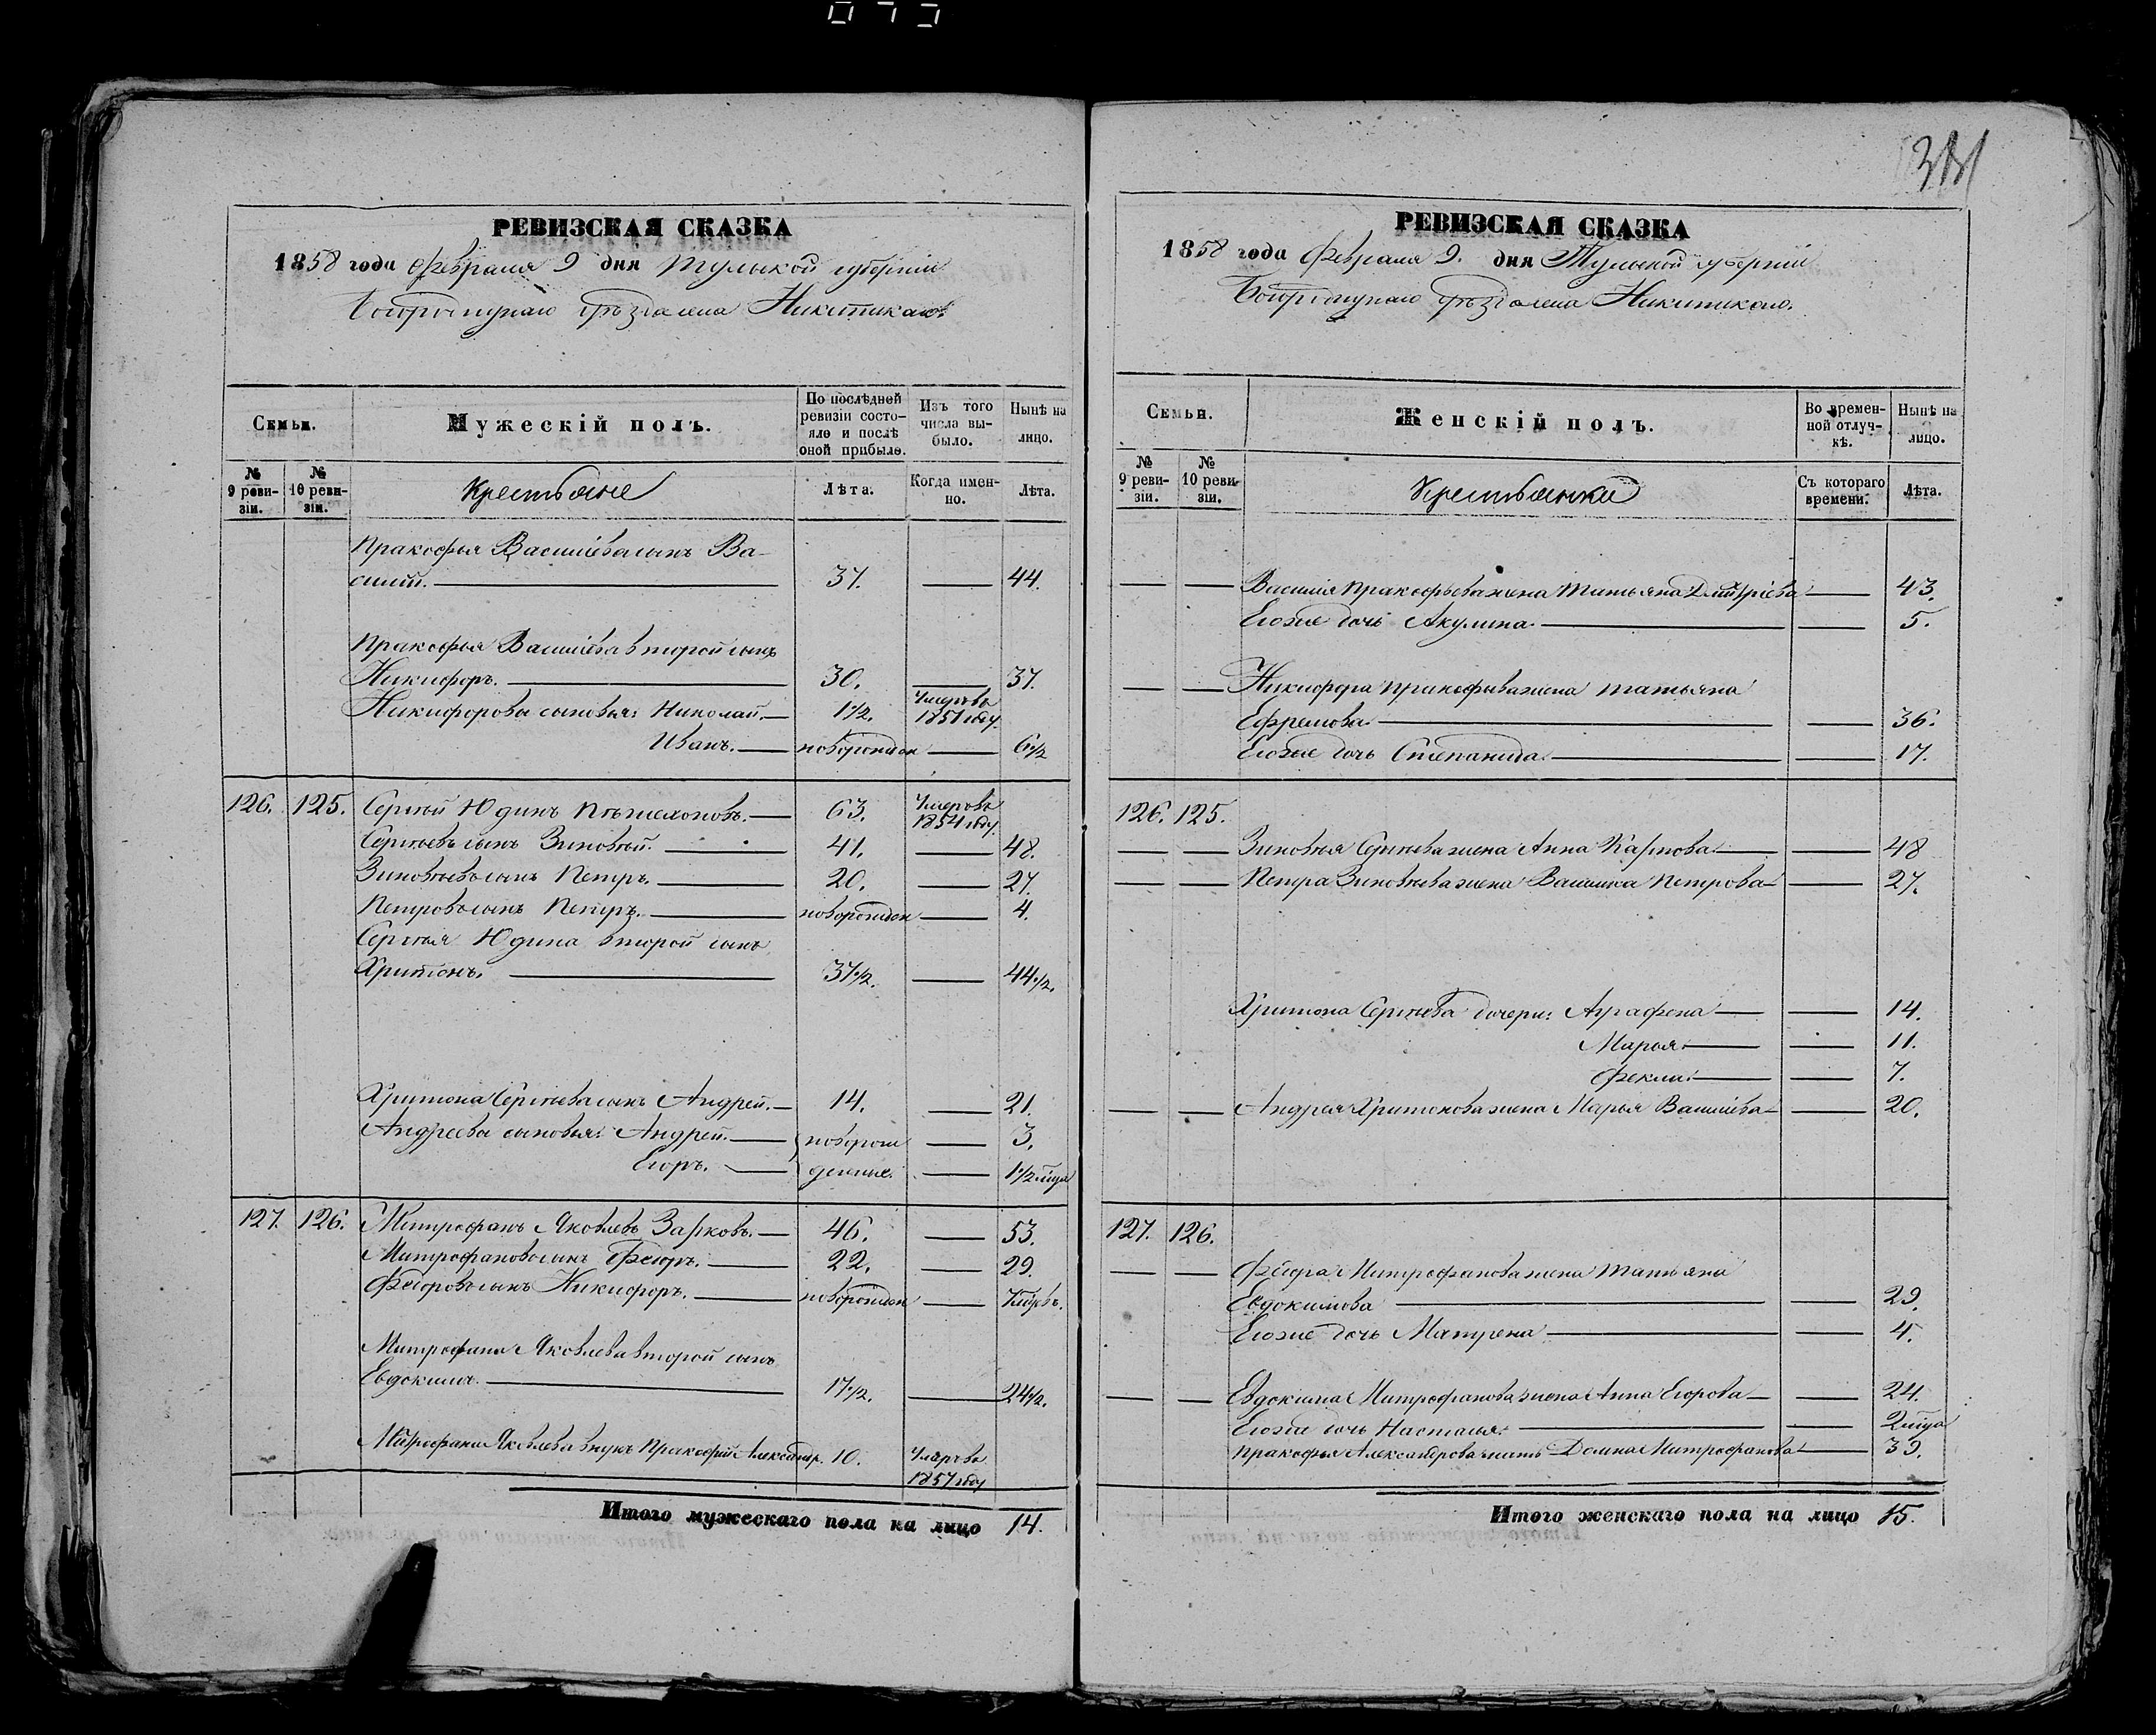 РЕВИЗСКАЯ СКАЗКА
1858 года Февраля 9 дня Тульской губерніи
Богородицкаго уѣзда села Никитскаго.
Семьи.
Мужескій полъ.
По послѣдней ревизіи состояло и послѣ оной прибыло.
Изъ того числа выбыло.
Нынѣ на лицо.
№ 9 ревизіи.
№ 10 ревизіи.
Крестьяне
Лѣта.
Когда именно.
Лѣта.
Пракофья Васильева сынъ Ва-
силій. 37. 44.
Пракофья Васильева второй сынъ
Никифоръ. 30. 37.
Никифоровы сыновья: Николай. 1 1/2. Умеръ въ 1851 году.
Иванъ. новорожден 6 1/2
126. 125. Сергѣй Юдинъ 63. Умеръ въ 1854 году.
Сергѣевъ сынъ Зиновѣй. 41. 48.
Зиновѣевъ сынъ Петръ. 20. 27.
Петровъ сынъ Петръ. новорожден 4.
Сергѣя Юдина второй сынъ
Хритонъ. 37 1/2. 44 1/2.
Хритона Сергѣева сынъ Андрей. 14. 21.
Андреевы сыновья: Андрей. новорож 3.
Егоръ. денные. 1 1/2 мѣца
127. 126. Митрофанъ Яковлевъ Зарковъ. 46. 53.
Митрофановъ сынъ Ѳедоръ. 22. 29.
Федоровъ сынъ Никифоръ. новорожден
Митрофана Яковлева второй сынъ
Евдокимъ. 17 1/2. 24 1/2.
Митрофана Яковлева внукъ Пракофій Александр. 10. Умеръ въ 1857 году
Итого мужескаго пола на лицо 14.
РЕВИЗСКАЯ СКАЗКА
1858 года Февраля 9. дня Тульской губерніи
Богородицкаго уѣзда села Никитскаго.
Семьи.
Женскій полъ.
Во временной отлучкѣ.
Нынѣ на лицо.
№ 9 ревизіи.
№ 10 ревизіи.
Крестьянки
Съ котораго времени.
Лѣта.
Василія Пракофьева жена Татьяна Дмитріева 43.
Его же дочь Акулина. 5.
Никифора Пракофьева жена Татьяна
Ефремова. 36.
Его же дочь Степанида. 17.
126. 125.
Зиновья Сергѣева жена Анна Карпова 48
Петра Зиновѣева жена Василиса Петрова 27.
Хритона Сергѣева дочери: Аграфена 14.
Марья. 11.
Фекла. 7.
Андрея Хритонова жена Марья Васильева 20.
127. 126.
Федора Митрофанова жена Татьяна
Евдокимова 29.
Его же дочь Матрена 4.
Евдокима Митрофанова жена Анна Егорова 24.
Его же дочь Настасья. 2 мѣца
Пракофья Александрова мать Домна Митрофанова 39.
Итого женскаго пола на лицо 15.